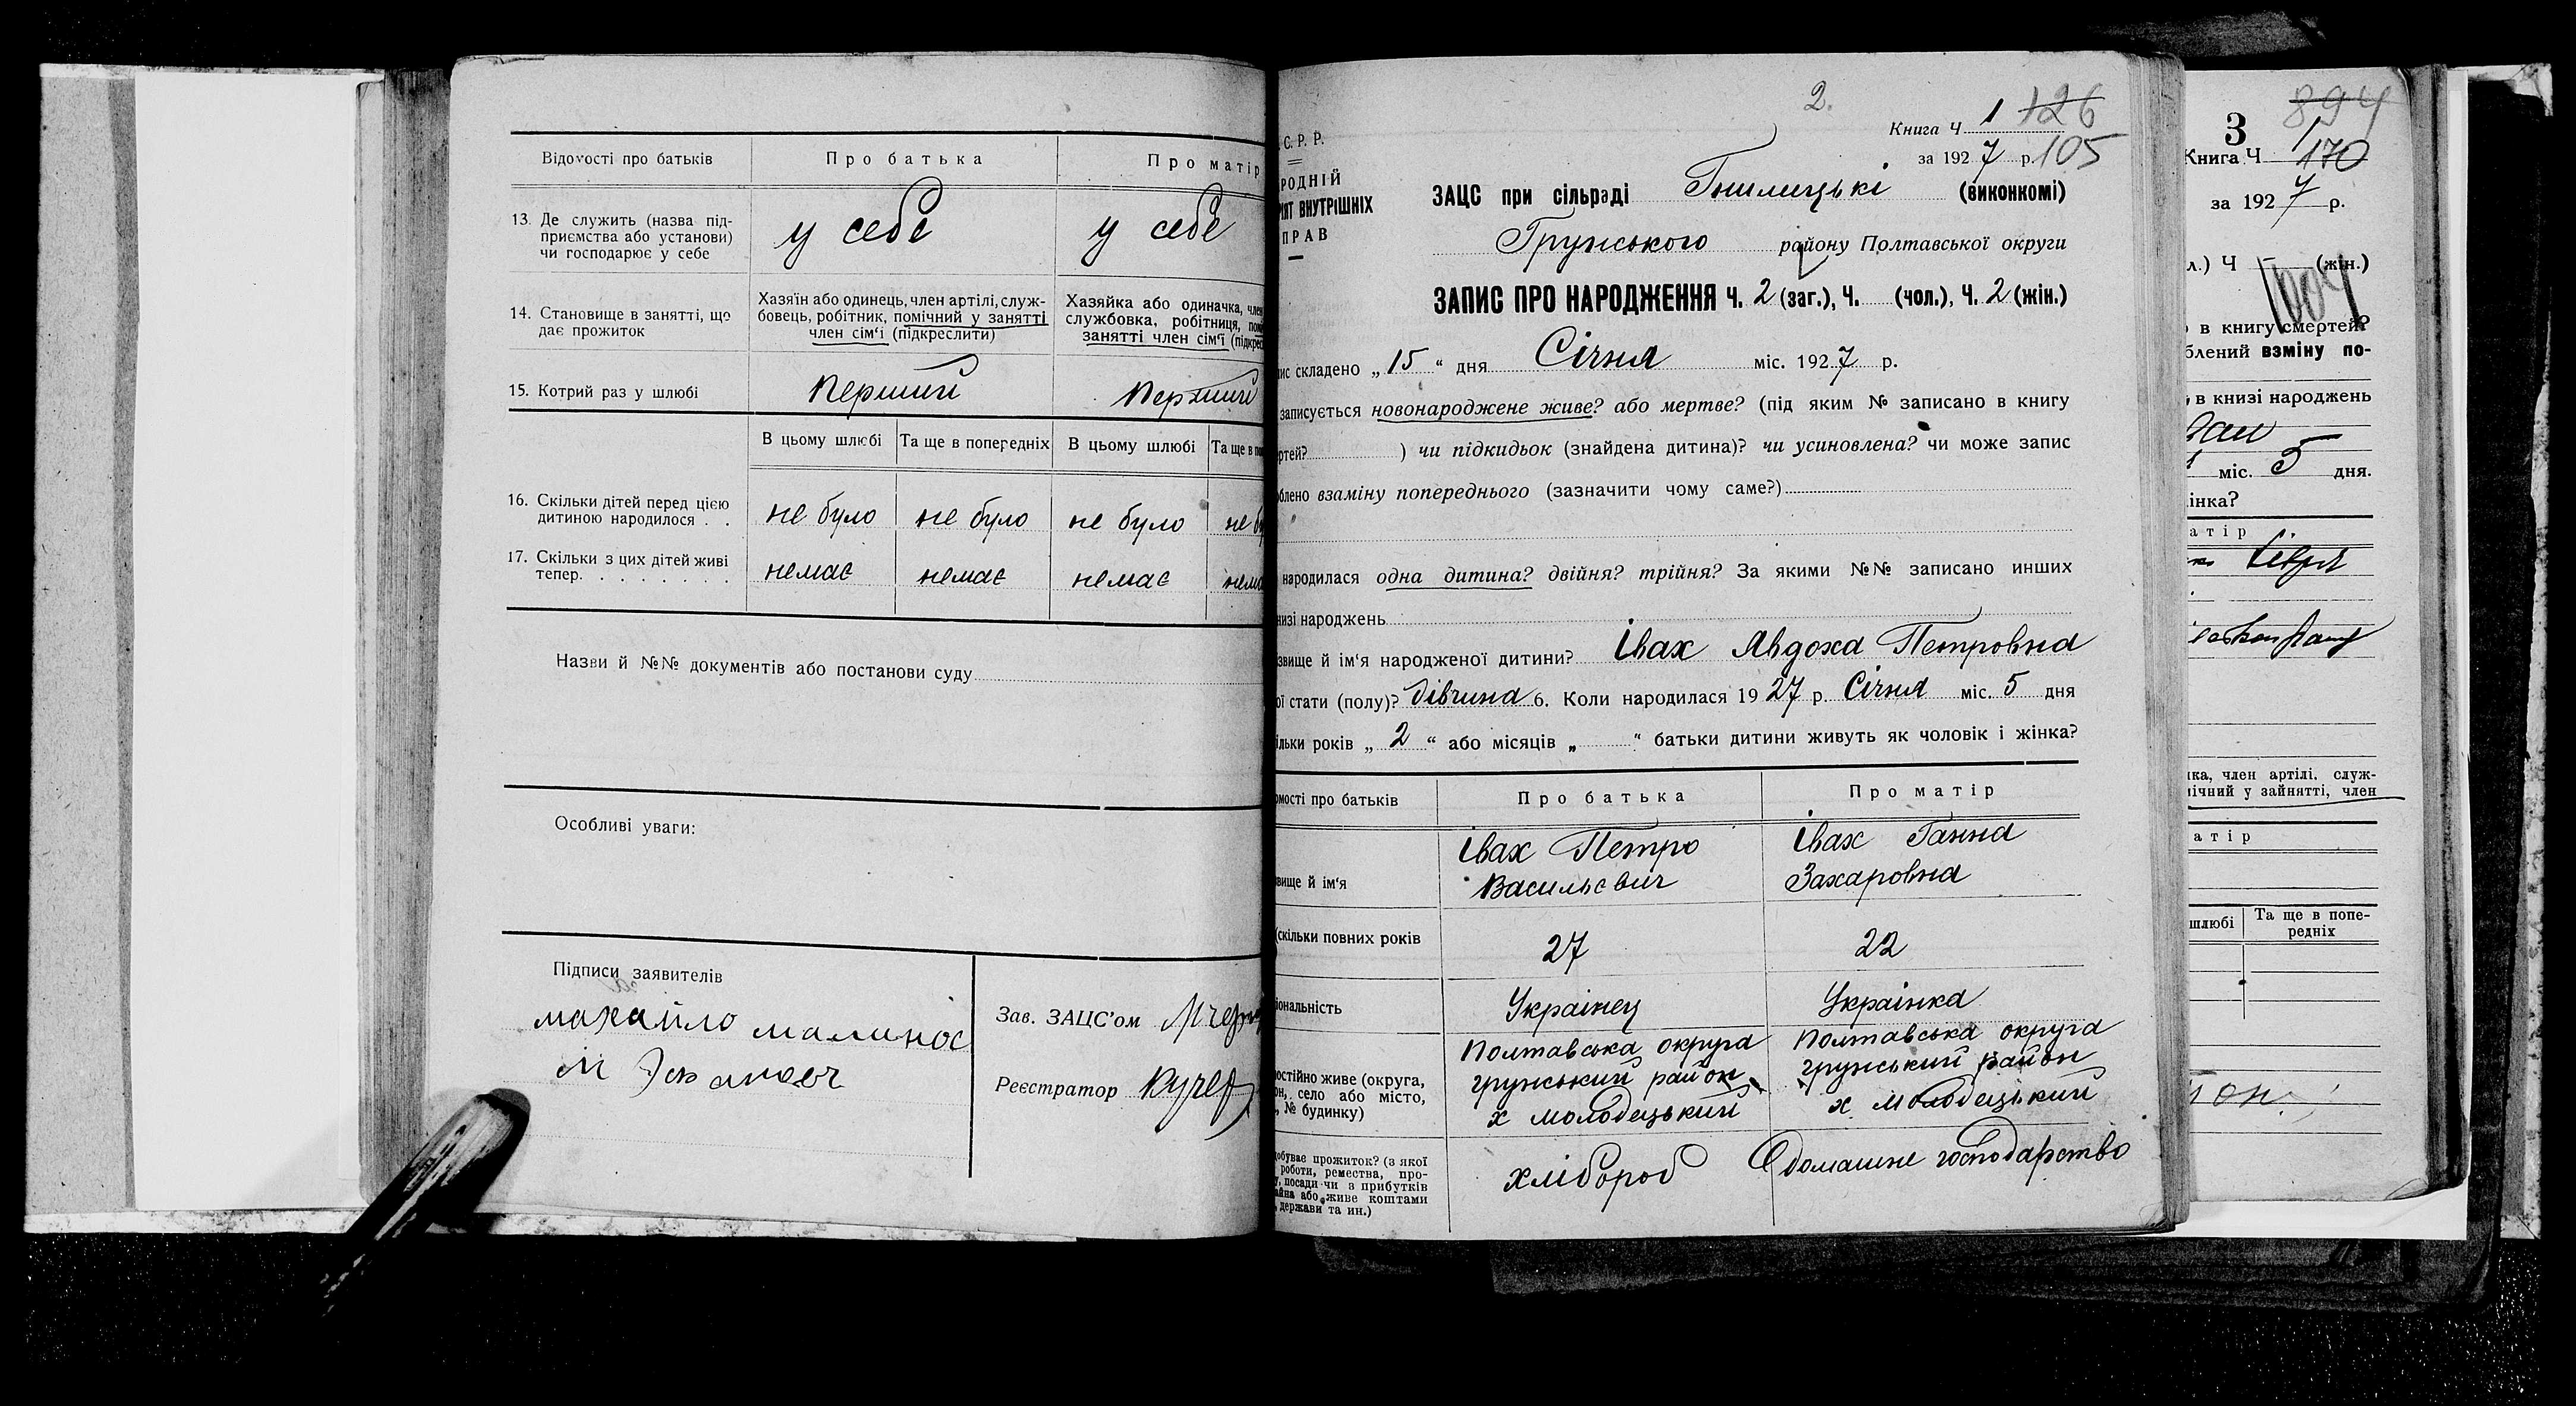 Відомості про батьків
Про батька
Про матір
13. Де служить (назва під-
приємства або установи)
чи господарює у себе
у себе
у себе
14. Становище в занятті, що
дає прожиток
Хазяїн або одинець, член артілі, служ-
бовець, робітник, помічний у занятті
член сім'ї (підкреслити)
Хазяйка або одиначка, член
службовка, робітниця,
занятті член сім'ї
15. Котрий раз у шлюбі
Перший
Перший
В цьому шлюбі
Та ще в попередніх
В цьому шлюбі
Та ще в
16. Скільки дітей перед цією
дитиною народилося . .
не було
не було
не було
не
17. Скільки з цих дітей живі
тепер. . . . . . . .
немає
немає
немає
Назви й №№ документів або постанови суду
Особливі уваги:
Підписи заявителів
Зав. ЗАЦС'ом
Реєстратор
2.
Книга Ч. 1 126
за 1927 р. 105
С. Р. Р.
ПРАВ
ЗАЦС при сільраді (виконкомі)
Грунського району Полтавської округи
ЗАПИС ПРО НАРОДЖЕННЯ Ч. 2 (заг.), Ч. (чол.), Ч. 2 (жін.)
складено „15“ дня Січня міс. 1927 р.
записується новонароджене живе? або мертве? (під яким № записано в книгу
) чи підкидьок (знайдена дитина)? чи усиновлена? чи може запис
взаміну попереднього (зазначити чому саме?)
народилася одна дитина? двійня? трійня? За якими №№ записано инших
народжень
й ім'я народженої дитини? Івах Явдоха Петровна
стати (полу)? дівчина 6. Коли народилася 1927 р. Січня міс. 5 дня
років „2“ або місяців „ “ батьки дитини живуть як чоловік і жінка?
про батьків
Про батька
Про матір
й ім'я
Івах Петро
Васильєвич
Івах Ганна
Захаровна
(скільки повних років
27
22
Українец
Українка
живе (округа,
село або місто,
№ будинку)
Полтавська округа
грунський район
х молодецький
Полтавська округа
грунський район
х молодецький
прожиток? (з якої
роботи, ремества, про-
посади чи з прибутків
або живе коштами
держави та ин.)
хлібороб
домашне господарство
894
3
Книга Ч. 1
170
за 1927 р.
Ч (жін.)
в книгу смертей?
взміну по-
в книзі народжень
міс. 5 дня.
член артілі, служ-
у зайнятті, член
шлюбі
Та ще в попе-
редніх